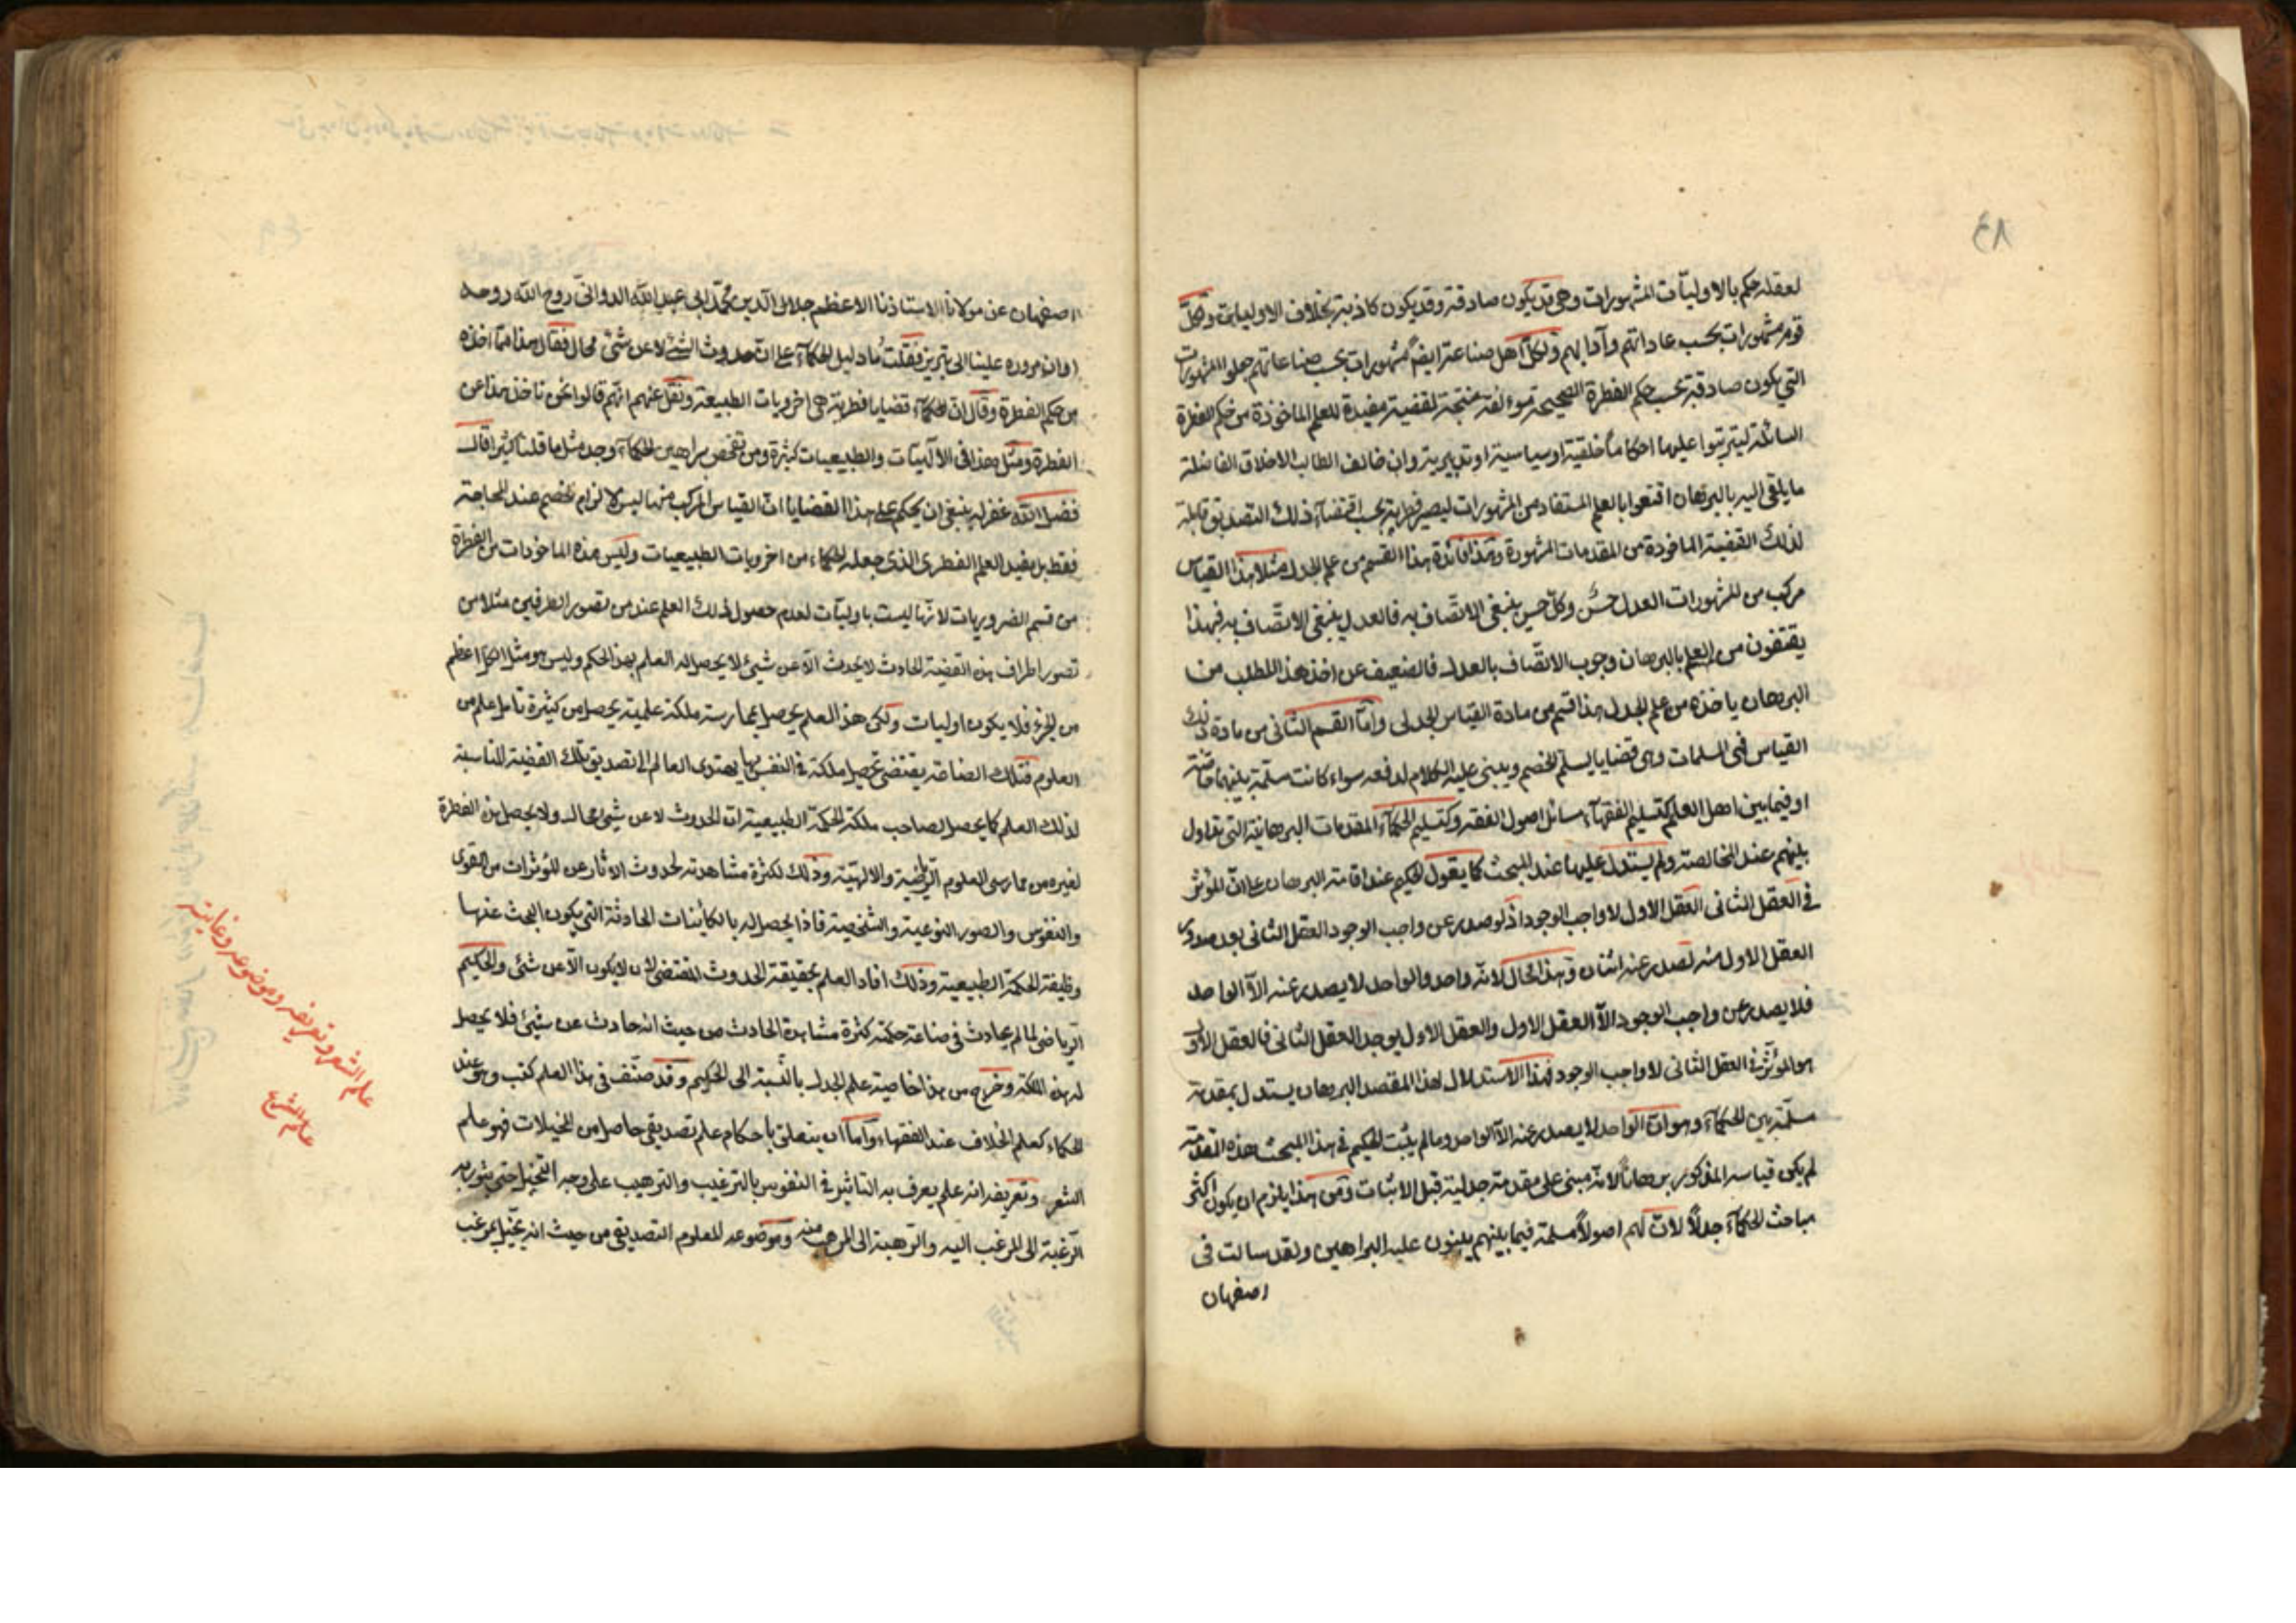 ٨٩
لعقله حكم بالاوليّات المشهورات وهى قد يكون صادقة وقد يكون كاذبة بخلاف الاوليات ولكلّ
قوم مشهورات بحسب عاداتهم وآدابهم ولكلّ اهل صناعة ايضاً مشهورات بحسب صناعاتهم جعلوا المشهورات
التى يكون صادقة بحسب حكم الفطرة الصحيحة مؤلفة منتجة لقضية مفيدة للعلم الماخوذة من حكم الفطرة
السائلة ليترتبوا عليها احكاماً خلقية او سياسية او تدبيرية وان خالف الطالب الاخلاق الفاضلة
ما يلقى اليه بالبرهان اقنعوا بالعلم المستفاد من المشهورات ليصير فطريته بحسب اقتضاء ذلك التصديق قابلة
لذلك القضية الماخوذة من المقدمات المشهورة وهذا فائدة هذا القسم من علم الجدل مثلا هذا القياس
مركب من المشهورات العدل حسنٌ وكلّ حسن ينبغى الاتّصاف به فالعدل ينبغى الاتّصاف به فهذا
يقتفون من العلم بالبرهان وجوب الاتّصاف بالعدل فالضعيف عن اخذ هذا المطلب من
البرهان ياخذه من علم الجدل هذا قسم من مادة القياس الجدلى وامّا القسم الثانى من مادة ذلك
القياس فهى المسلمات وهى قضايا يسلّم الخصم ويبنى عليه الكلام لدفعه سواء كانت مسلّمة بينهما خاصّة
او فيما بين اهل العلم كتسليم الفقهآء مسائل اصول الفقه وكتسليم الحكمآء المقدمات البرهانية التى تداول
بينهم عند المخالصة ولم يستدل عليها عند المبحث كما يقول الحكيم عند اقامته البرهان على انّ المؤثر
فى العقل الثانى العقل الاول لا واجب الوجود اذ لو صدر عن واجب الوجود العقل الثانى بعد صدور
العقل الاول منه لصدر عنه اثنان وهذا محال لانّه واحد والواحد لا يصدر عنه الاّ الواحد
فلا يصدر عن واجب الوجود الاّ العقل الاول والعقل الاول يوجد العقل الثانى فالعقل الاوّل
هو المؤثّر فى العقل الثانى لا واجب الوجود فهذا الاستدلال لهذا المقصد البرهان يستدل بمقدمة
مسلّمة بين الحكمآء وهو انّ الواحد لا يصدر عنه الاّ الواحد وما لم يثبت الحكيم فى هذا المبحث هذه المقدّمة
لم يكن قياسه المذكور برهاناً لانّه مبنى على مقدمة جدلية قبل الاثبات ومن هذا يلزم ان يكون اكثر
مباحث الحكمآء جدلاً لانّ لهم اصولاً مسلمة فيما بينهم يبنون عليه البراهين ولقد سالت فى
اصفهان
اصفهان عن مولانا الاستاذنا الاعظم جلال الدين محمّد ابى عبد الله الدوانىّ روح الله روحه
اوان مروره علينا الى تبريز فقلت ما دليل الحكمآء على انّ حدوث الشئ لا عن شئ محال فقال هذا ممّا اخذه
من حكم الفطرة وقال ان للحكمآء قضايا فطرية هى اخرويات الطبيعة ونقل عنهم انّهم قالوا نحن ناخذ هذا عن
الفطرة ومثل هذا فى الآلهيّات والطبيعيات كثيرة ومن تفحّص براهين الحكمآء وجد مثل ما قلنا كثيرا قال
فضل الله غفر له ينبغى ان يحكم على هذا القضايا انّ القياس المركب منها ليس لالزام الخصم عند المحاجة
فقط بل يفيد العلم الفطرى الذى جعله الحكماء من اخرويات الطبيعيات وليس هذه الماخوذات من الفطرة
من قسم الضروريات لانّها ليست باوليّات لعدم حصول ذلك العلم عند من تصور الطرفين مثلا من
تصور اطراف هذه القضية الحادث لا يحدث الاّ عن شئ لا يحصل له العلم بهذا الحكم وليس هو مثل الكل اعظم
من الجزء فلا يكون اوليات ولكن هذا العلم يحصل بممارسة ملكة علمية يحصل من كثرة تامل علم من
العلوم فتلك الصناعة يقتضى تحصيل ملكة فى النفس بها يهتدى العالم الى تصديق تلك القضية المناسبة
لذلك العلم كما يحصل لصاحب ملكة الحكمة الطبيعية انّ الحدوث لا عن شئ محال ولا يحصل هذه الفطرة
لغيره من ممارسى العلوم الرّياضية والالهيّة وذلك لكثرة مشاهدته لحدوث الاثار عن المؤثرات من القوى
والنفوس والصور النوعية والشخصية فاذا يحصل له بالكاينات الحادثة التى يكون البحث عنها
وظيفة الحكمة الطبيعية وذلك افاد العلم بحقيقة الحدوث المقتضى لان لا يكون الاّ عن شئ والحكيم
الرّياضى لما لم يحادث فى صناعة حكمته كثرة مشاهدة الحادث من حيث انه حادث عن شئ فلا يحصل
له هذه الملكة وخرج من هذا خاصية علم الجدل بالنّسبة الى الحكيم وقد صنّف فى هذا العلم كتب وهو عند
الحكماء كعلم الخلاف عند الفقهاء وامّا ان يتعلق باحكام علم تصديقى حاصل من المخيلات فهو علم
الشعر وتعريفه انه علم يعرف به التاثير فى النفوس بالترغيب والترهيب على وجه التخيل حتى يثور به
الرّغبة الى المرغب اليه والرّهبة الى المرهب منه وموضوعه المعلوم التصديقى من حيث انه يخيّل يرغب
علم الشعر وتعريفه وموضوعه وغايته
علم الشعر